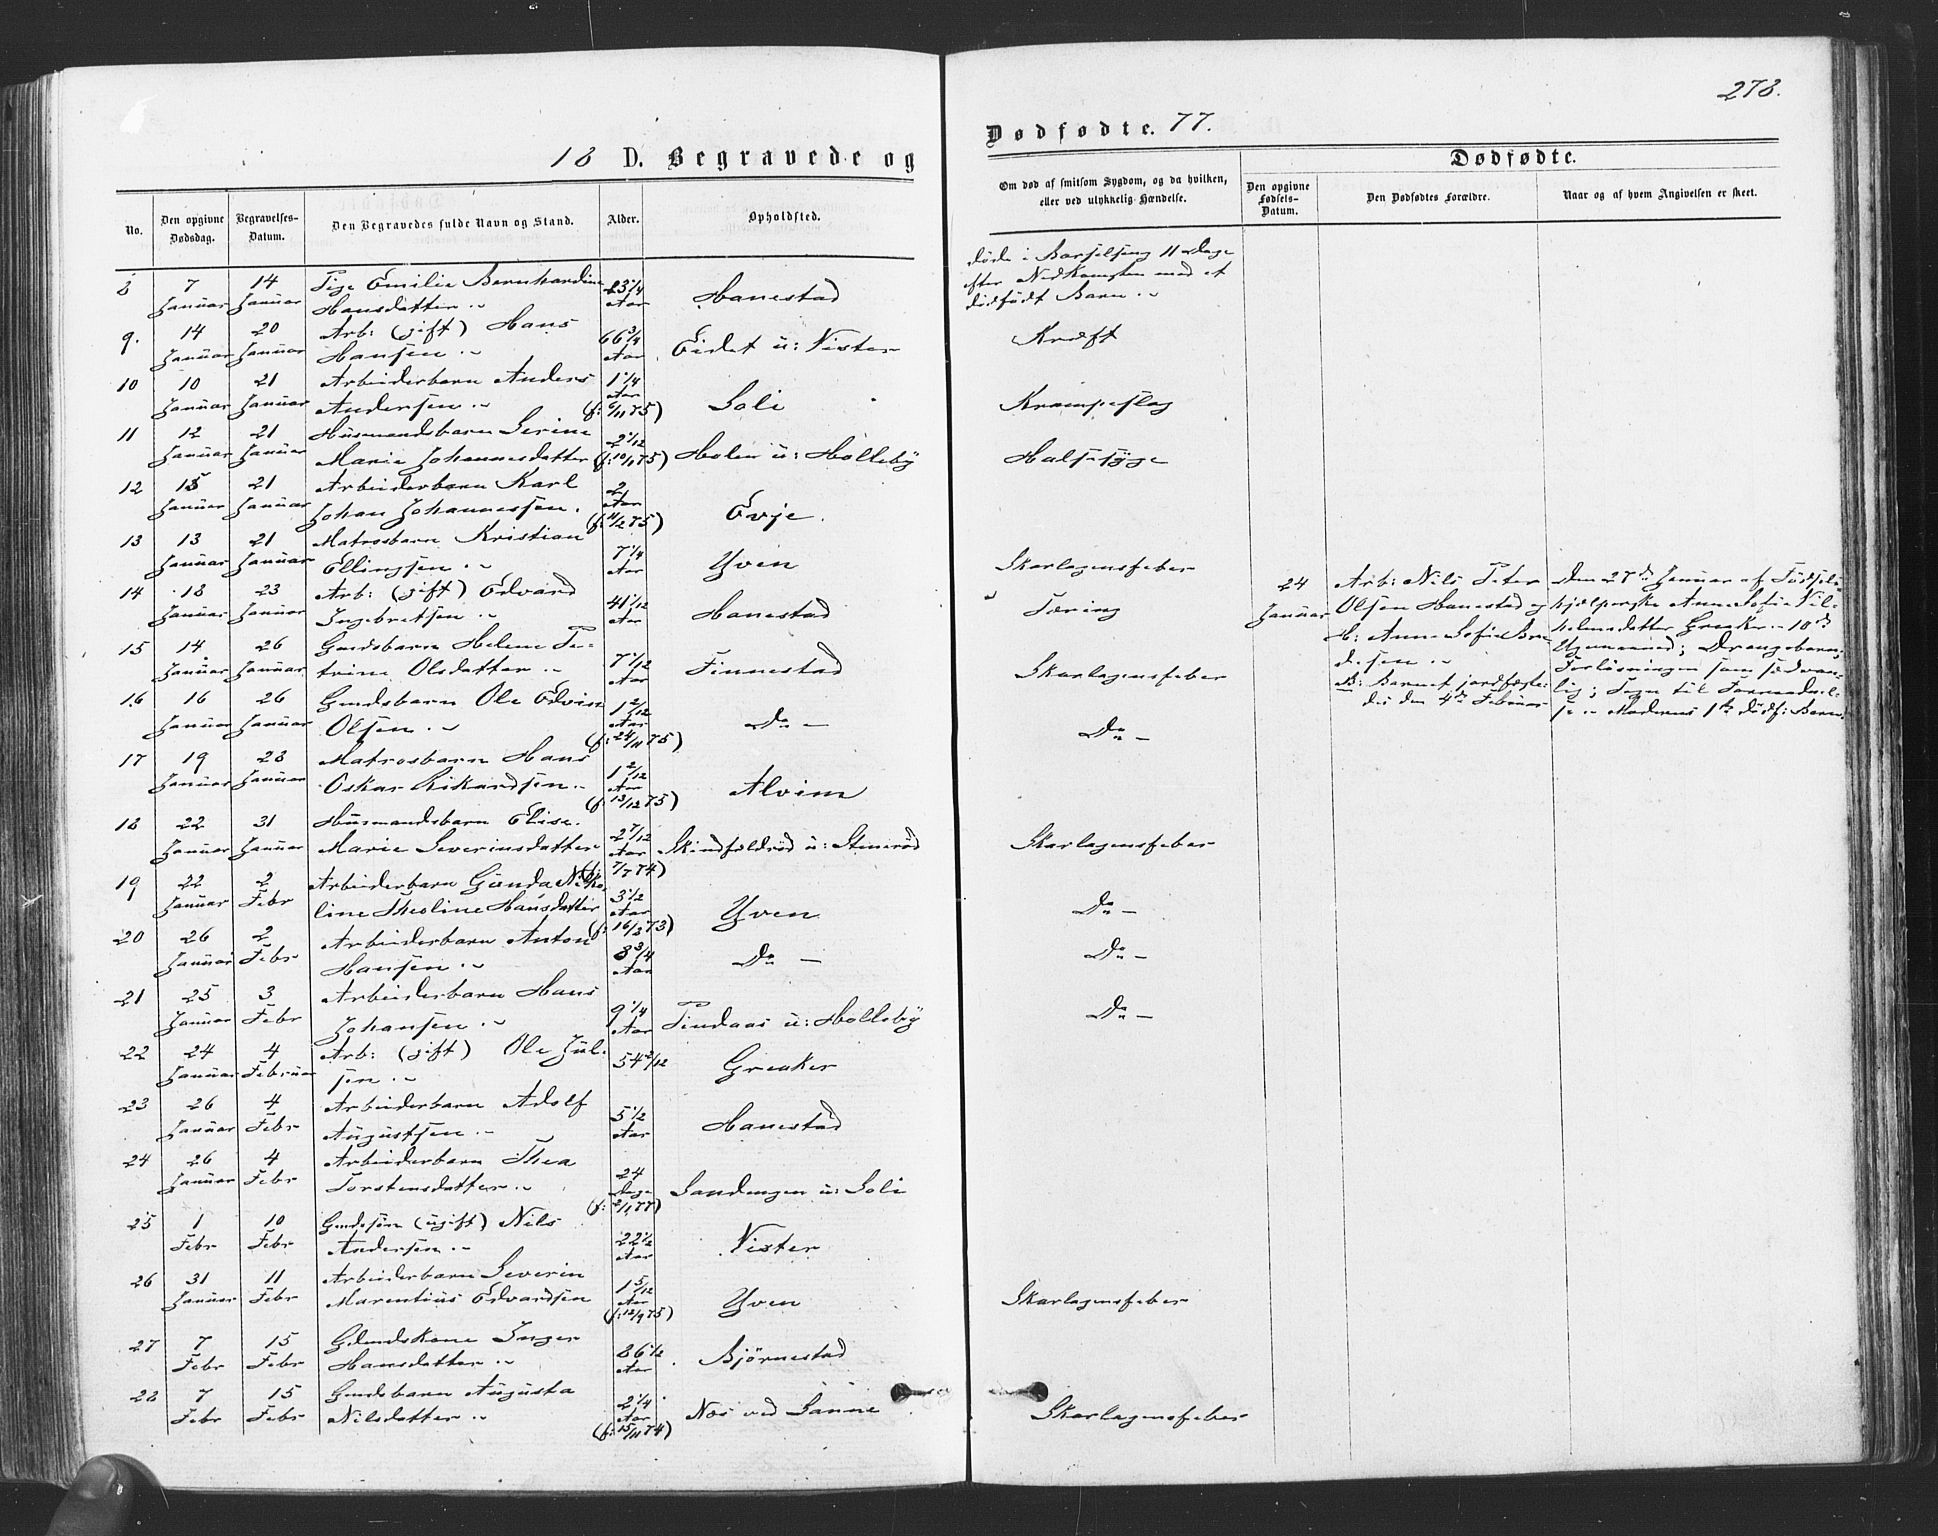 278.
18 D. Begravede og
Dødfødte. 77.
No.
Den opgivne Dødsdag.
Begravelses-Datum.
Den Begravedes fulde Navn og Stand.
Alder.
Opholdsted.
Om død af smitsom Sygdom, og da hvilken,
eller ved ulykkelig Hændelse.
Dødfødte.
Den opgivne Fødsels-Datum.
Den Dødfødtes Forældre.
Naar og af hvem Angivelsen er skeet.
8 7 Januar 14 Januar Pige Emilie Bernhardine
Hansdatter 23 1/4 Aar Hanestad
døde i Barselseng 11 Dage
efter Nedkomsten med et
dødfødt Barn
9. 14 Januar 20 Januar Arb: (gift) Hans
Hansen 66 3/4 Aar Eidet u: Nister Kræft
10 10 Januar 21 Januar Arbeiderbarn Anders
Andersen 1 1/4 Aar (f: 6/11 75) Soli Krampeslag
11 12 Januar 21 Januar Husmandsbarn Serine
Marie Johannesdatter 2 1/12 (f: 10/1 75) Holen u: Holleby Halssyge
12 15 Januar 21 Januar Arbeiderbarn Karl
Johan Johannessen. 2 Aar (f: 11/2 75) Evje.
13 13 Januar 21 Januar Matrosbarn Kristian
Ellingsen 7 1/4 Aar Yven Skarlagensfeber
14 18 Januar 23 Januar Arb: (gift) Edvard
Ingebretsen 41 1/12 Aar Hanestad Tæring
24 Januar
Arb: Nils Peter
Olsen Hanestad og
H: Anne Sofie
B: Barnet jordfæste-
des den 4de Februar
Den 27de Januar af Fødsels-
hjælperske Anne Sofie Vil-
helmsdatter Greaker. 10de
Ugemaaned; Drengebarn;
Forløsningen som sædvan-
lig; Tegn til Forraadnel-
se Moderens 1ste dødf: Barn.
15 14 Januar 26 Januar Gmdsbarn Helene Pe-
trine Olsdatter 7 1/12 Aar Finnestad Skarlagensfeber
16 16 Januar 26 Januar Gmdsbarn Ole Edvin
Olsen 1 2/12 Aar (f: 24/11 75) Do — Do —
17 19 Januar 28 Januar Matrosbarn Hans
Oskar Rikardsen 1 2/12 Aar (f: 13/12 75) Alvim
18 22 Januar 31 Januar Husmandsbarn Elise
Marie Severinsdatter 2 7/12 Aar (f: 7/7 74) Skindfeldrød u: Stenrød Skarlagensfeber
19 22 Januar 2 Febr Arbeiderbarn Gunda Niko-
line Theoline Hansdatter 3 1/2 Aar (f: 16/3 73) Yven Do —
20 26 Januar 2 Febr Arbeiderbarn Anton
Hansen 8 3/4 Aar Do — Do —
21 25 Januar 3 Febr Arbeiderbarn Hans
Johansen 9 1/4 Aar Tindaas u: Holleby Do —
22 24 Januar 4 Februar Arb: (gift) Ole Jul-
sen 54 2/12 Greaker
23 26 Januar 4 Febr Arbeiderbarn Adolf
Augustsen 5 1/2 Aar Hanestad
24 26 Januar 4 Febr Arbeiderbarn Thea
Torstensdatter 24 Dage (f: 2/1 77) Sandengen u: Soli
25 1 Febr 10 Febr Gmdssøn (ugift) Nils
Andersen 22 1/2 Aar Nister
26 31 Januar 11 Febr Arbeiderbarn Severin
Marentius Edvardsen 1 5/12 Aar (f: 12/9 75) Yven Skarlagensfeber
27 7 Febr 15 Febr Gdmdskone Inger
Hansdatter 86 1/2 Aar Bjørnestad
28 7 Febr 15 Febr Gmdsbarn Augusta
Nilsdatter 2 1/4 Aar (f: 15/11 74) Nes ved Sanne Skarlagensfeber